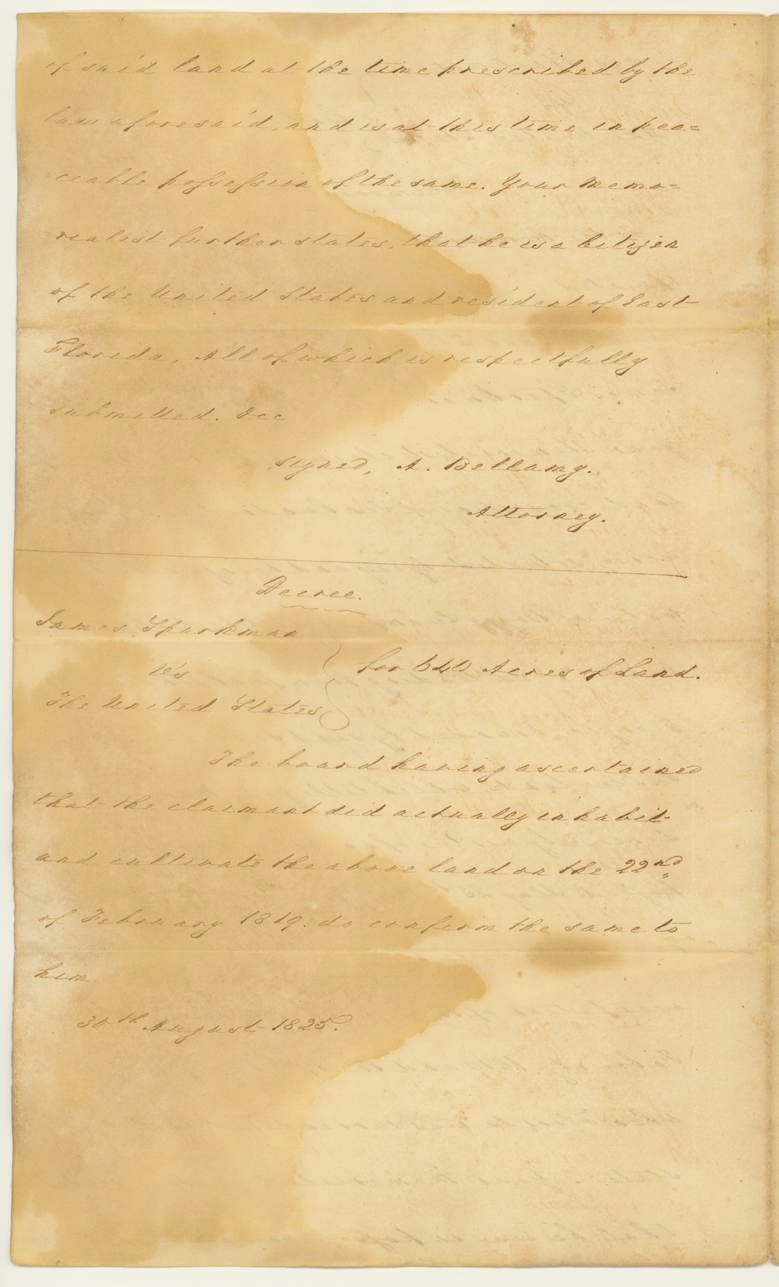 of said land at the time prescribed by the
law aforesaid, and is at this time in pea=
=ceable possession of the same. Your Memo=
=rialist further states, that he is a Citizen
of the United States and resident of East
Florida, All of which is respectfully
submitted. &cc
signed, A. Bellamy.
Attorney.
Decree.
James Sparkman
vs
The United States
for 640 Acres of Land.
The board having ascertained
that the claimant did actually inhabit
and cultivate the above land on the 22nd
of February 1819. do confirm the same to
him
30th August 1825.